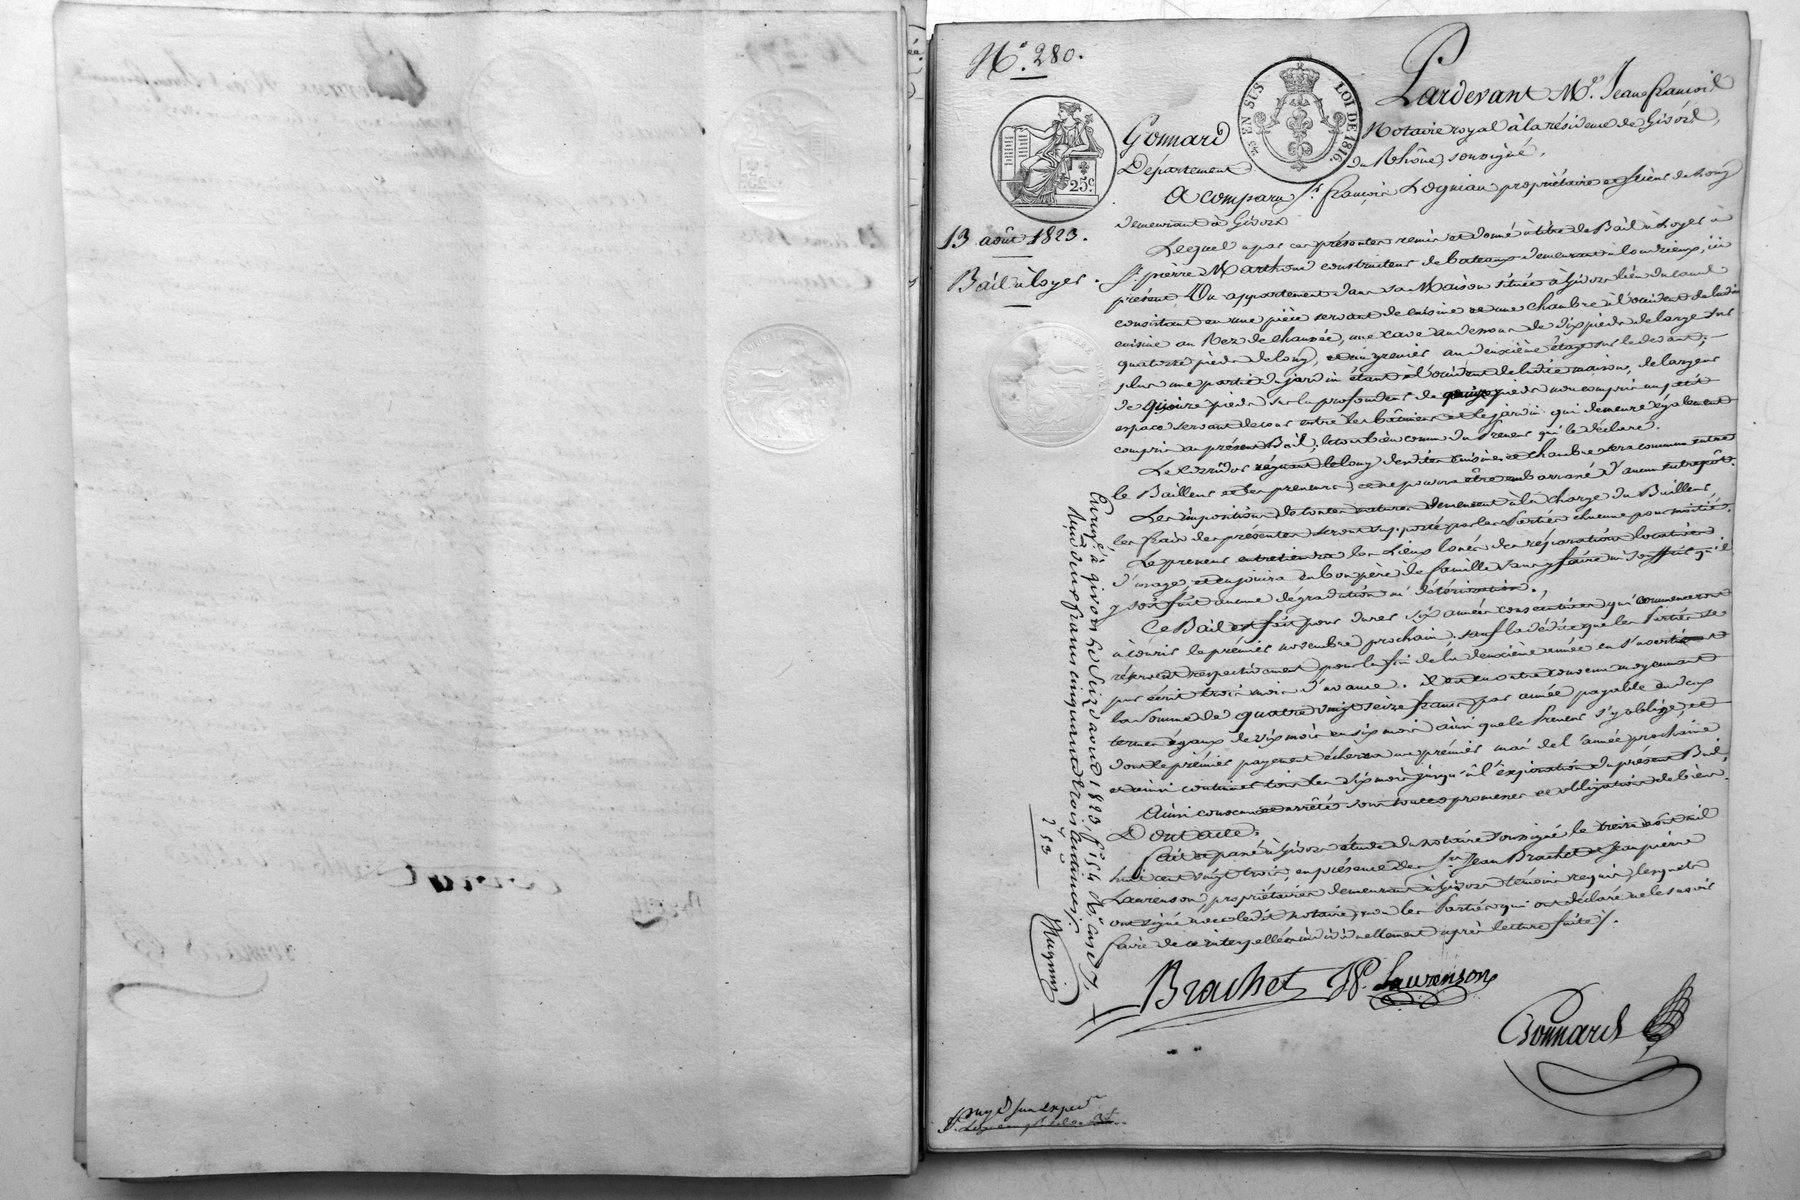 N.° 280.
EN SUS
LOI DE 1816
25c.
13 août 1823.
Bail à loyer.
Pardevant M.e Jean françois
Gonnard Notaire royal à la résidence de Givors,
Département du Rhône, soussigné,
A comparu S.r françois propriétaire et
demeurant à Givors
Lequel a par ces présentes remis et donné à titre de Bail à Loyer à
S.r pierre Marthoud constructeur de bateaux demeurant à Condrieux, ici
présent, Un appartement dans sa Maison située à Givors lieu du canal
consistant en une pièce servant de cuisine et une chambre à l'occident de ladite
cuisine au Rez de chaussée, une cave au dessous de dix pieds de large sur
quatorze pieds de long, et un grenier au deuxième étage sur le devant;
plus une partie du jardin étant à l'occident de ladite maison, de largeur
de quinze pieds sur la profondeur de pieds non compris un petit
espace servant de cour entre les bâtimens et le jardin qui demeure également
compris au présent Bail, le tout bien connu du Preneur qui le déclare.
Le Corridor régnant le long desdites cuisine et chambre sera commun entre
le Bailleur et les preneurs, et ne pourra être embarrassé d'aucun entrepôt.
Les impositions de toutes natures demeurent à la charge du Bailleur,
les frais des présentes seront supportés par les Parties chacune pour moitié.
Le preneur entretiendra les Lieux loués des réparations locatives
d'usage, et en jouira en bon père de famille sans y faire ni souffrir qu'il
y soit fait aucune dégradation ni détérioration.
Ce Bail est fait pour durer six années consécutives qui commenceront
à courir le premier novembre prochain, sauf la dédite que les Parties se
réservent respectivement pour la fin de la deuxième année en s'avertissant
par écrit trois mois d'avance. Il est en outre convenu moyennant
la somme de quatre vingt seize francs par année payable en deux
termes égaux de six mois en six mois ainsi que le Preneur s'y oblige, et
dont le premier payement échera au premier mai de l'année prochaine
et ainsi continuer tous les six mois jusqu'à l'expiration du présent Bail
Ainsi convenu et arrêté sous toutes promesses et obligation de biens.
Dont acte.
Fait et passé à Givors étude du notaire soussigné le treize août mil
huit cent vingt trois, en présence des S.rs Jean Brachet et Jean pierre
Laurenson, propriétaires demeurant à Givors témoins requis, lesquels
ont signé avec ledit notaire, non les Parties qui ont déclaré ne le savoir
faire de ce interpellées individuellement après lecture faite.
Brachet JP. Laurenson
Gonnard
Enreg.é à givors le Seize aout 1823, f.o 154 R.o case 7,
Reçu deux francs cinquante trois centimes.
2,53
Magnin